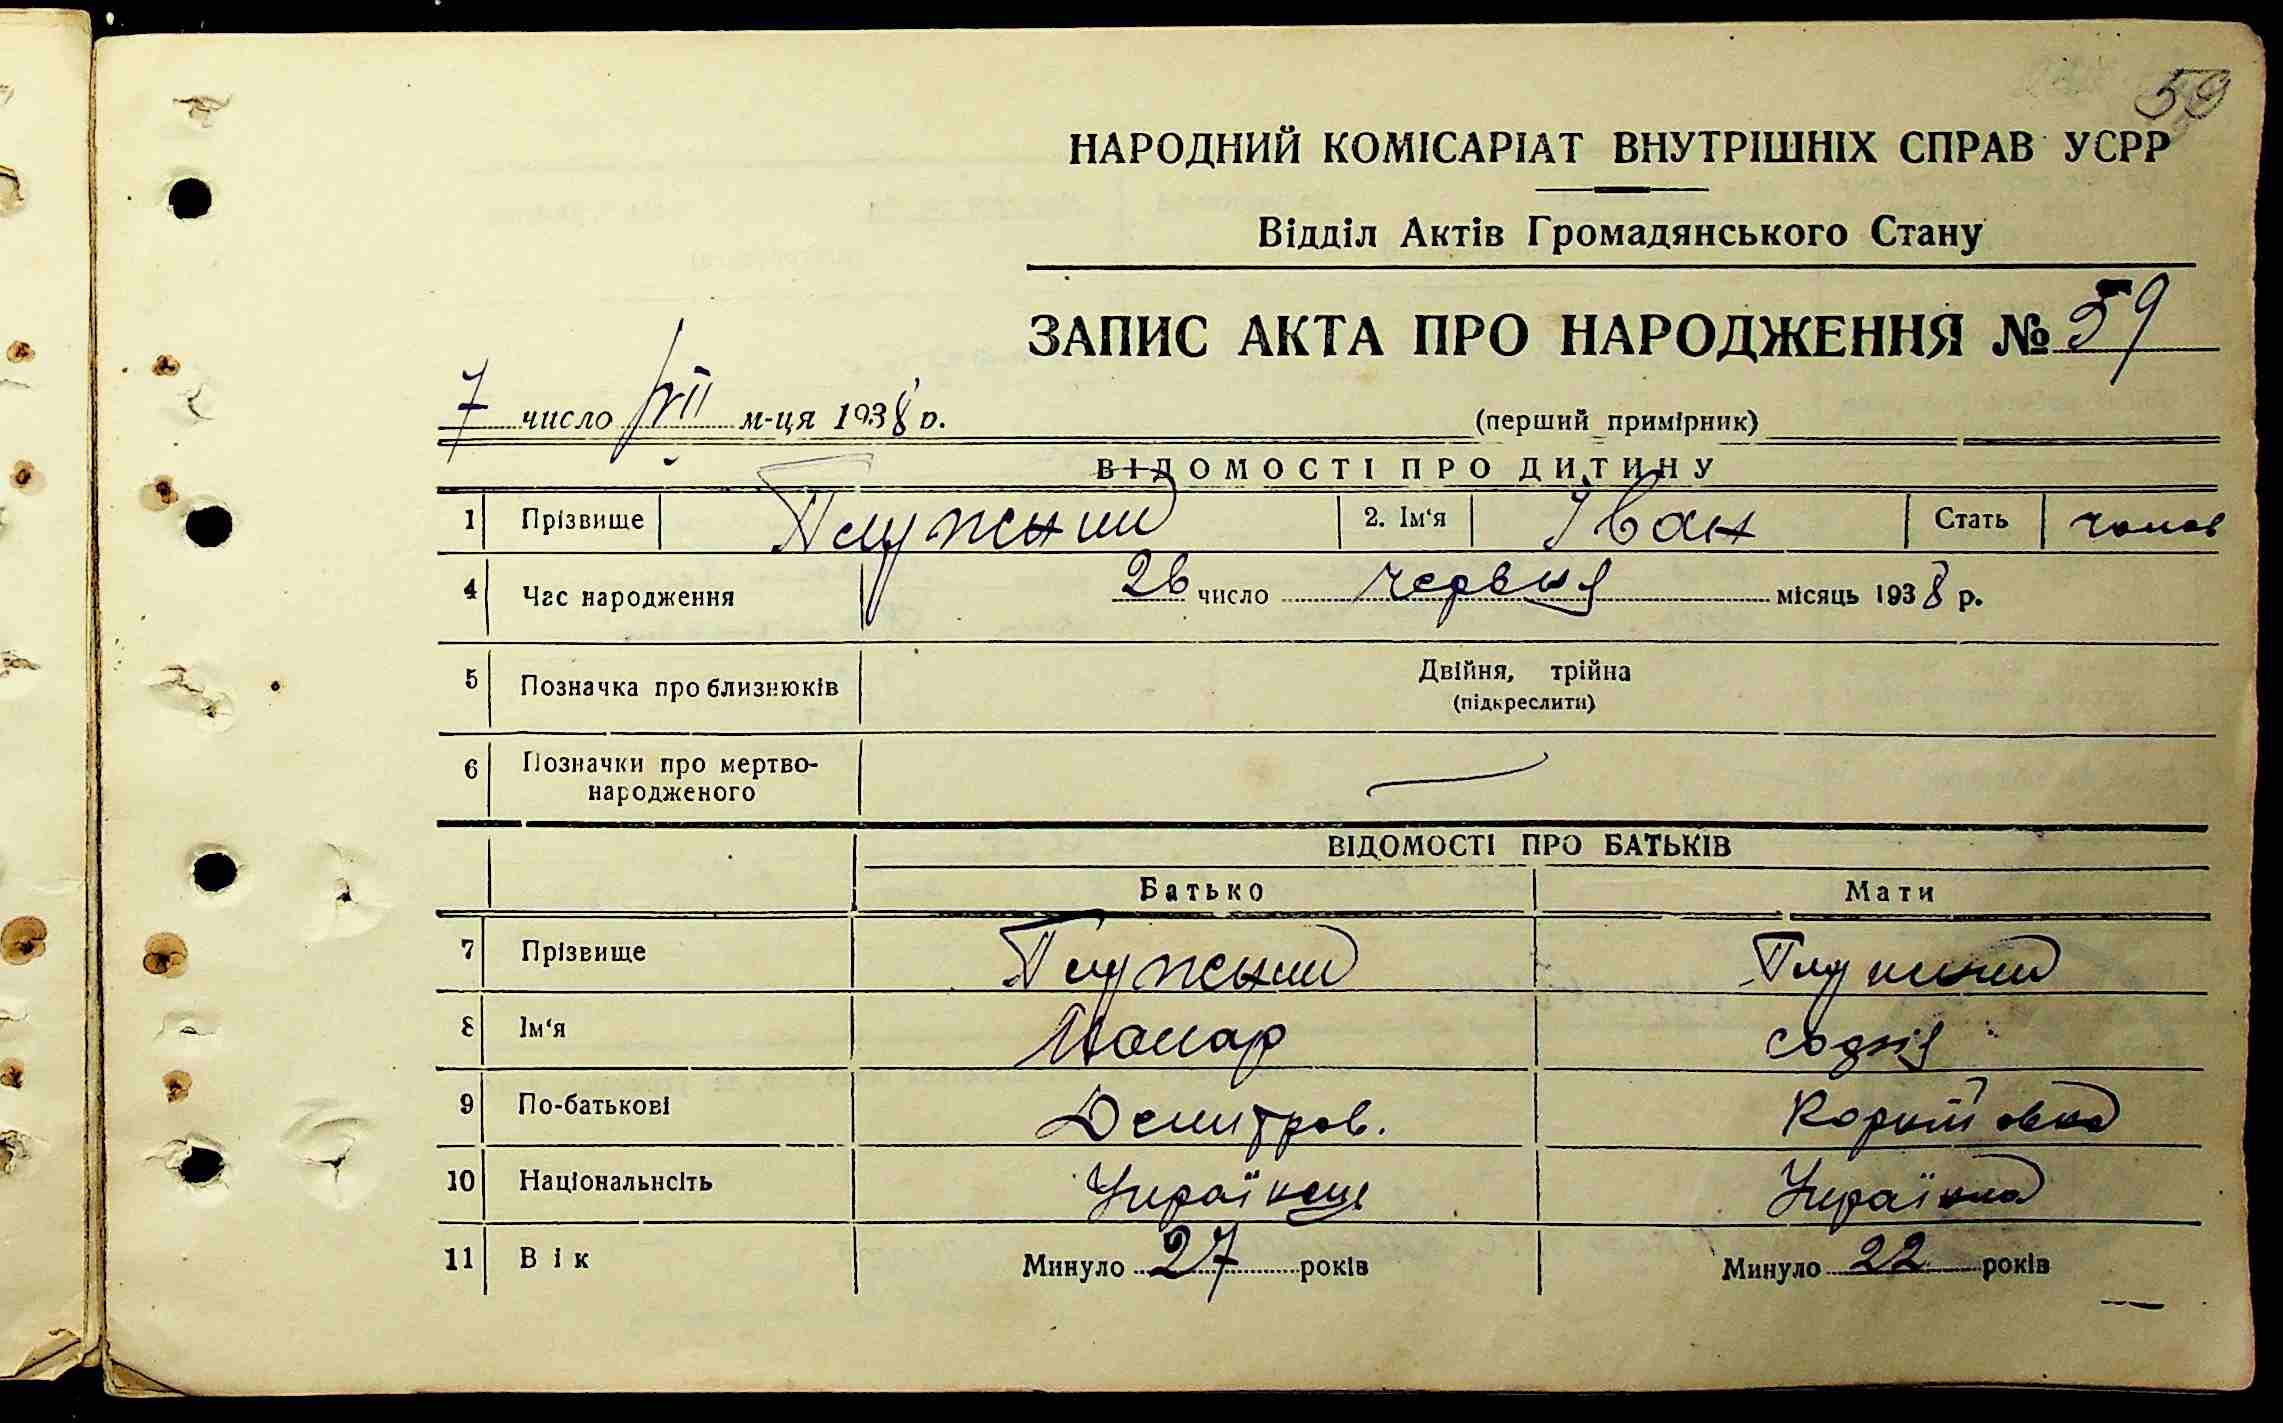 59
НАРОДНИЙ КОМІСАРІАТ ВНУТРІШНІХ СПРАВ УСРР
Відділ Актів Громадянського Стану
ЗАПИС АКТА ПРО НАРОДЖЕННЯ № 59
7 число VII м-ця 1938 р.
(перший примірник)
ВІДОМОСТІ ПРО ДИТИНУ
1 Прізвище Плужний 2. Ім'я Іван Стать чолов
4 Час народження 26 число червня місяць 1938 р.
5 Позначка про близнюків Двійня, трійна
(підкреслити)
6 Позначки про мертво-
народженого
ВІДОМОСТІ ПРО БАТЬКІВ
Батько Мати
7 Прізвище Плужний Плужний
8 Ім'я Макар Софія
9 По-батькові Демитров.
10 Національнсіть Українец Українка
11 Вік Минуло 27 років Минуло 22 років